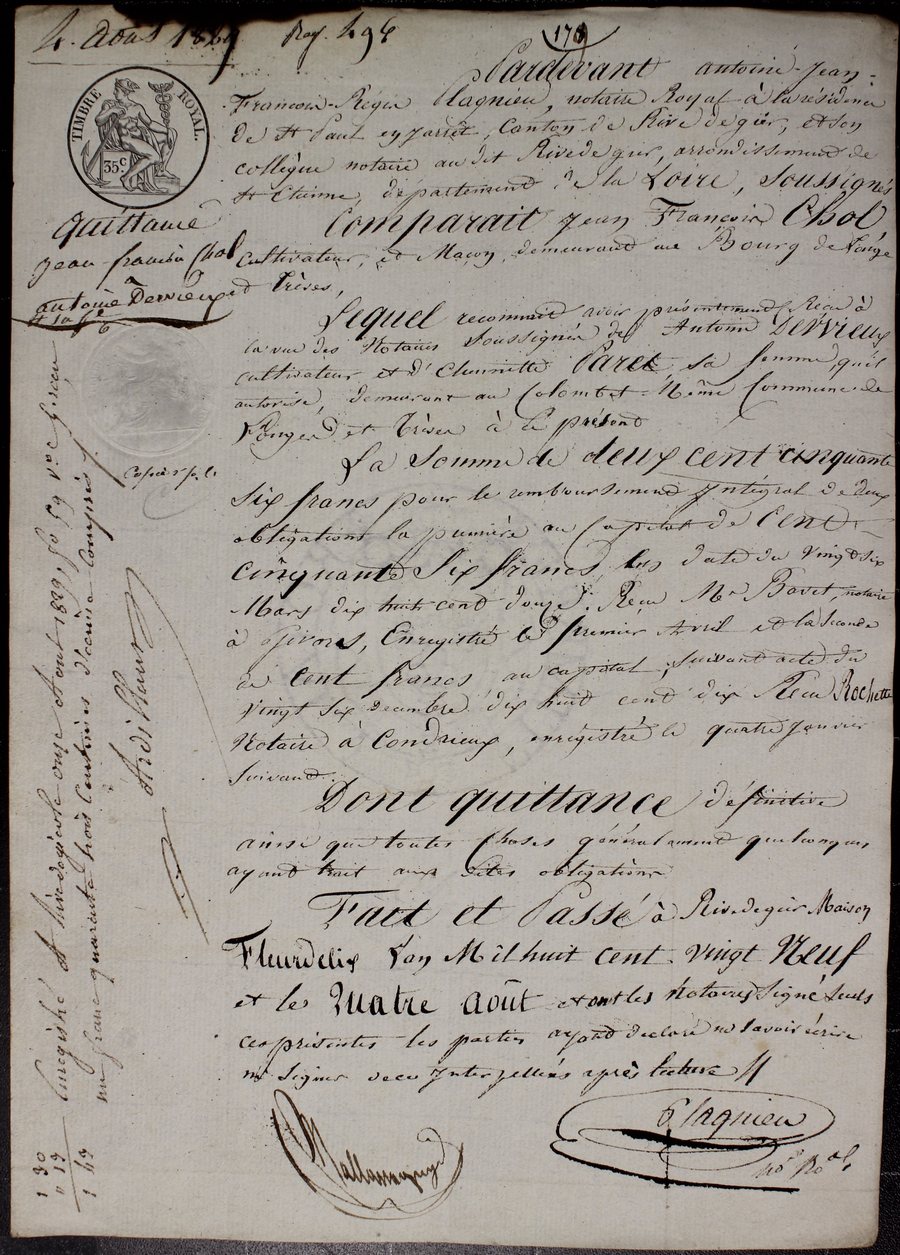 4. Août 1829
178
TIMBRE ROYAL.
35 C.
Pardevant antoine-Jean-
François-Régis Plagnieu, notaire Royal à la résidence
de St Paul en jarrêt, Canton de Rive de gier, et son
collègue notaire au dit Rivedegier, arrondissement de
St Etienne, département de la Loire, soussignés
Comparait Jean François Chol
cultivateur, et Maçon, demeurant au Bourg de
et Trèves,
quittance
Jean-françois Chol
à
antoine Dervieux
Lequel reconnait avoir présentement Reçu à
la vue des Notaires soussignés de Antoine Dervieux
cultivateur et d' Paret, sa femme, qu'il
autorise, demeurant au Colombet-Même Commune de
et Trèves à ce présent
La somme de deux cent cinquante
six francs pour le remboursement Intégral de deux
obligations la première au Capital de Cent-
cinquante Six francs, en date du vingt six
Mars dix huit cent douze, Reçu Me Bovet, notaire
à Givors, Enregistré le premier Avril et la seconde
de Cent francs au capital, suivant acte du
vingt six décembre dix huit cent dix Reçu Rochette
Notaire à Condrieux, enrégistré le quatre Janvier
suivant.
Dont quittance définitive
ainsi que toutes Choses généralement quelconques
ayant trait aux dites obligations
Fait et Passé à Rivedegier Maison
Fleurdelix L'an Mil huit cent vingt Neuf
et le Quatre août et ont les Notaires Signé seuls
ces présentes les parties ayant déclaré ne savoir écrire
ni Signer de ce Interpellées après lecture //
Plagnieu
Enregistré à Rivedegier le onze Août 1829, fo 59 Vo c reçu
un franc quarante trois centimes décime compris
1 30
" 13
1 43